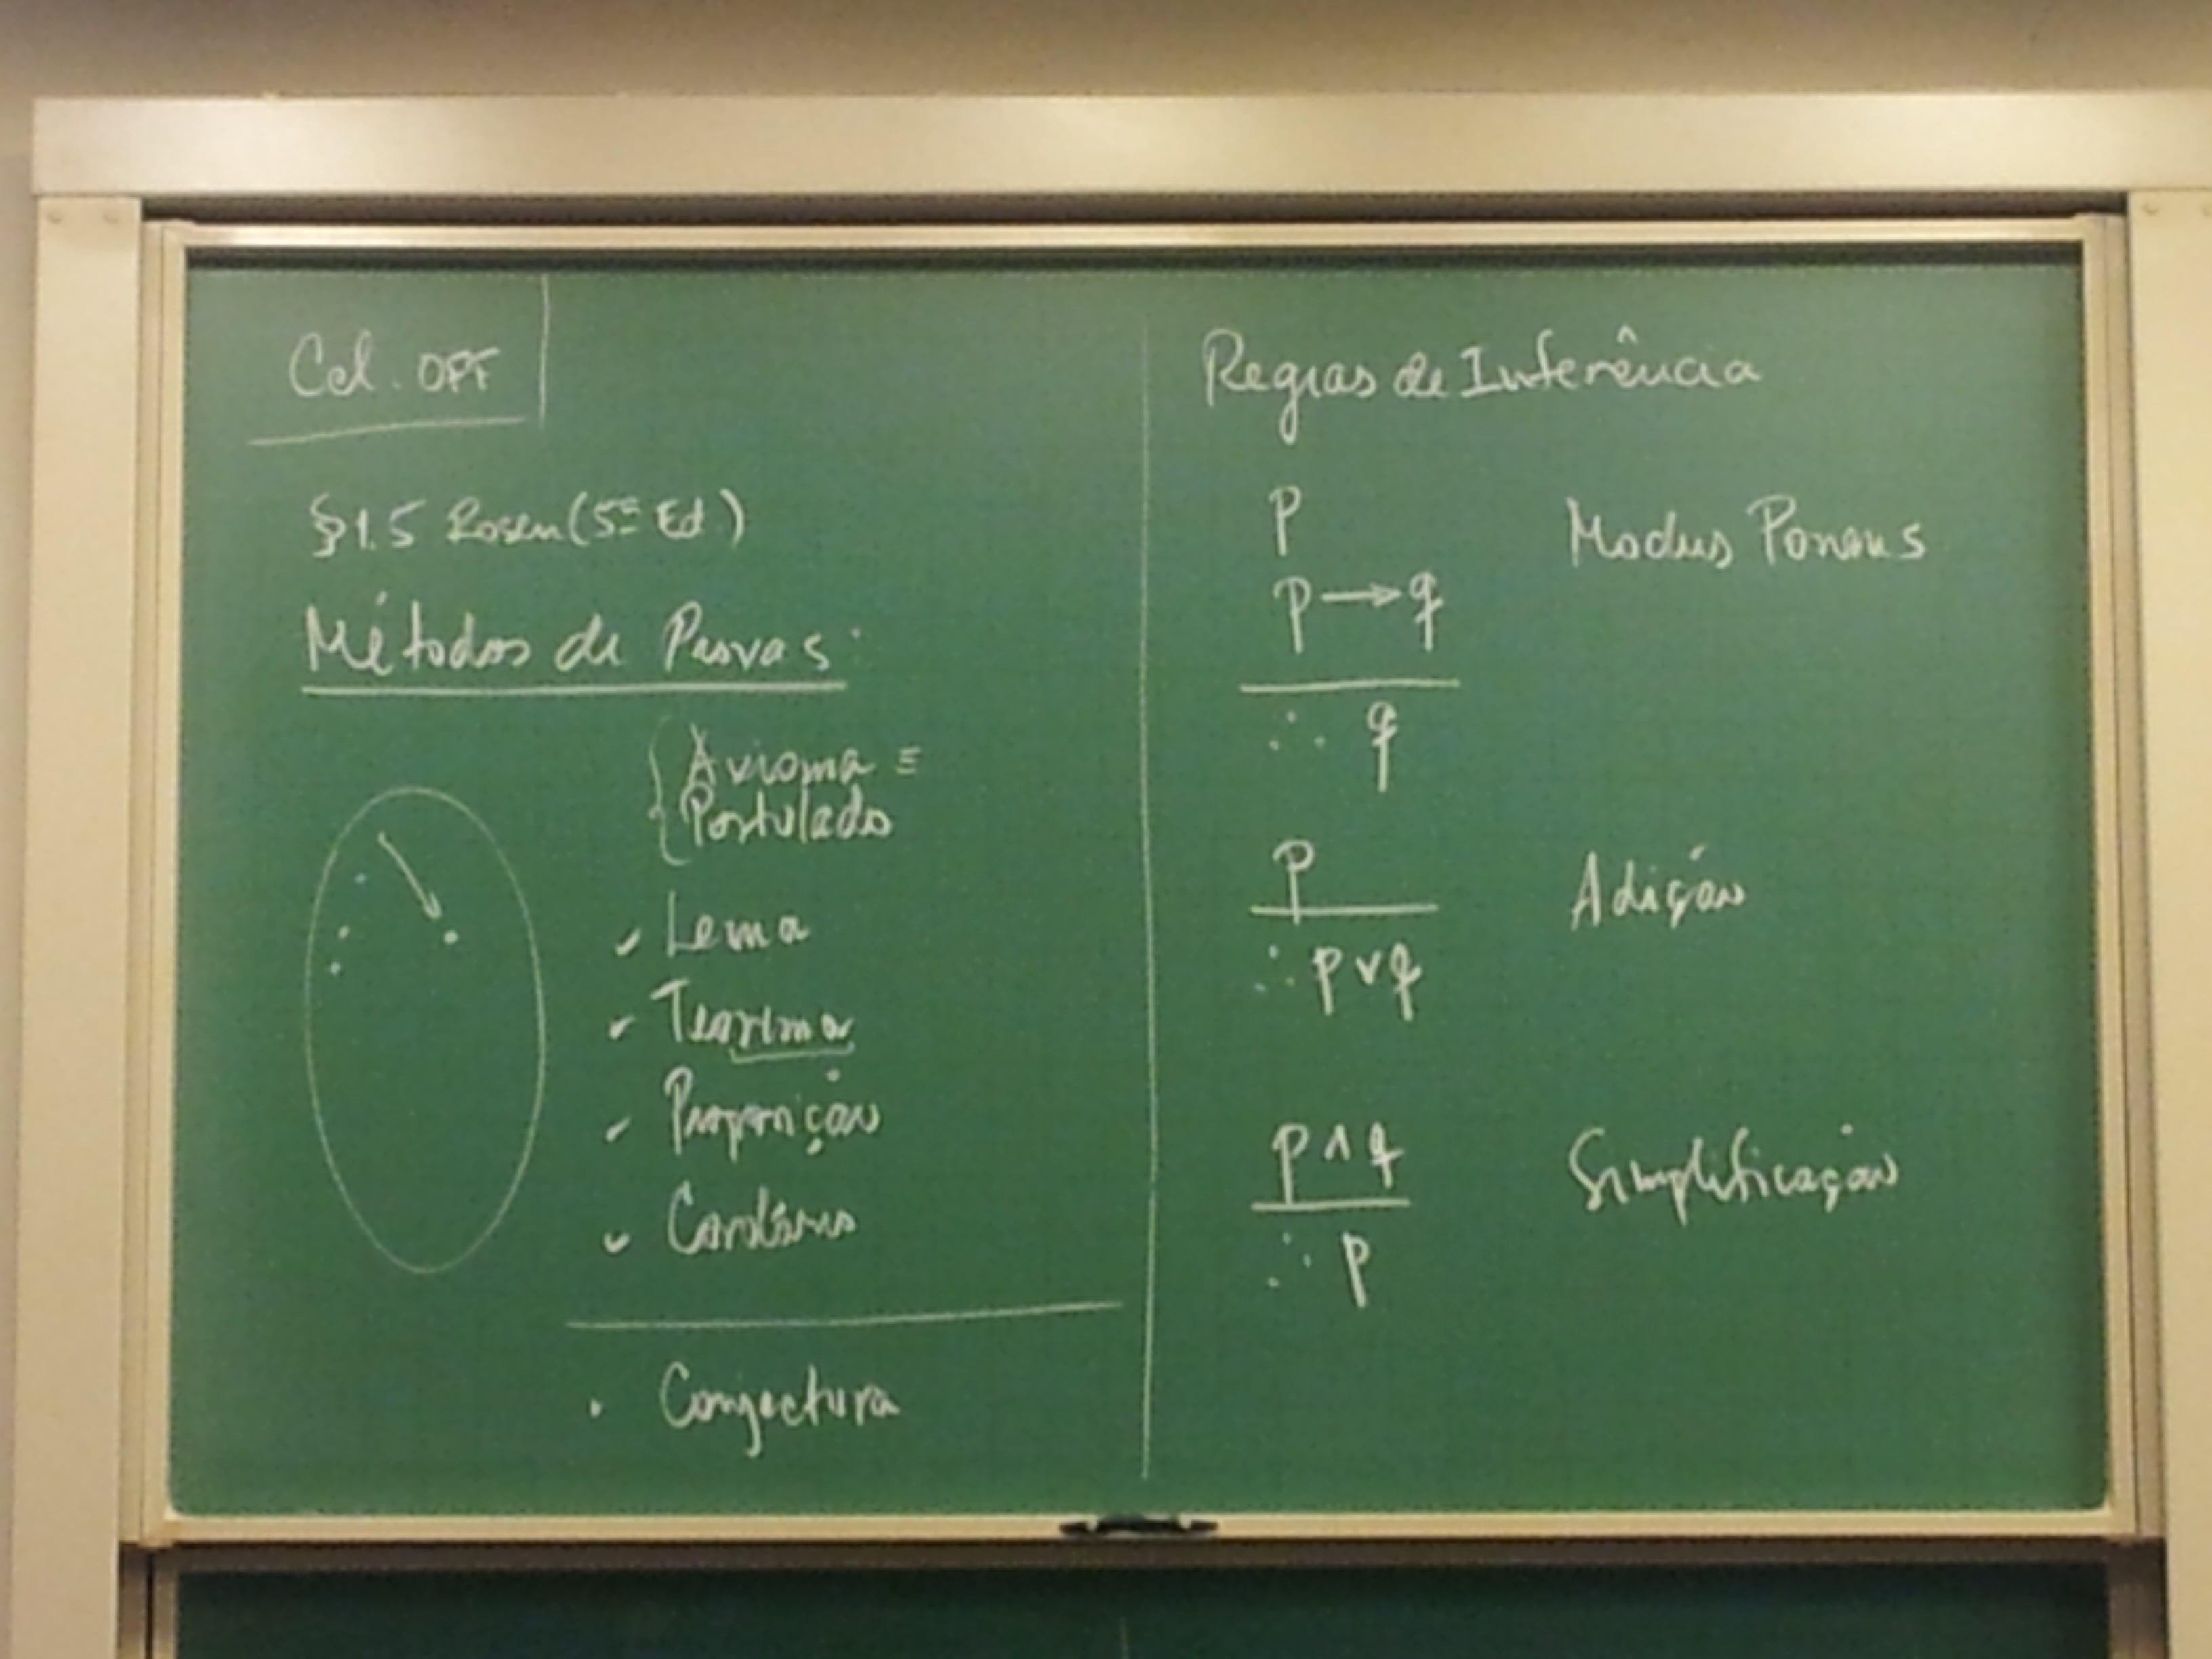 Cel. OFF
§1.5 Rosen (5ª Ed.)
Métodos de Provas:
{ Axioma ≡
Postulado
✓ Lema
✓ Teorema
✓ Proposição
✓ Corolário
• Conjectura
Regras de Inferência
p Modus Ponens
p → q
∴ q
p Adição
∴ p ∨ q
p ∧ q Simplificação
∴ p